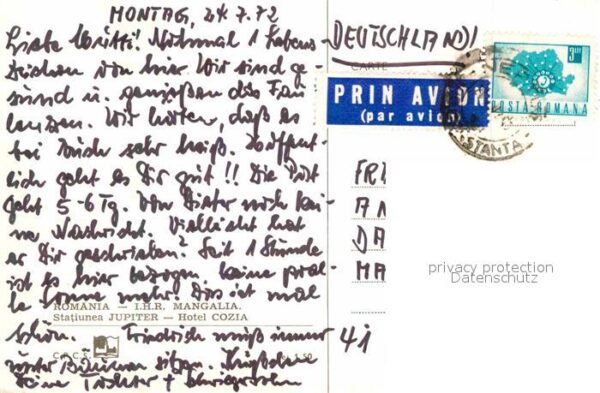 MONTAG, 24.7.72
Liebe Mutti! Nochmal 1 Lebens-
zeichen von hier. Wir sind ge-
sund u. genießen das Fau-
lenzen. Wir hörten, daß es
bei Euch sehr heiß. Hoffent-
lich geht es Dir gut!! Die Post
geht 5-6 Tg. Von Dieter noch kei-
ne Nachricht. Vielleicht hat
er Dir geschrieben? Seit 1 Stunde
ist es hier bezogen keine pral-
le Sonne mehr. Dies ist mal
schön. Friedrich muß immer
unter Bäumen sitzen.
Deine Tochter + Schwiegersohn
ROMANIA — I.H.R. MANGALIA.
Stațiunea JUPITER — Hotel COZIA
C.P.C.S.
1,50
DEUTSCHLAND!
CARTE
PRIN AVION
(par avion)
3 LEI
POSTA ROMANA
STANTA
FRI
AN
DA
MA
41
privacy protection
Datenschutz